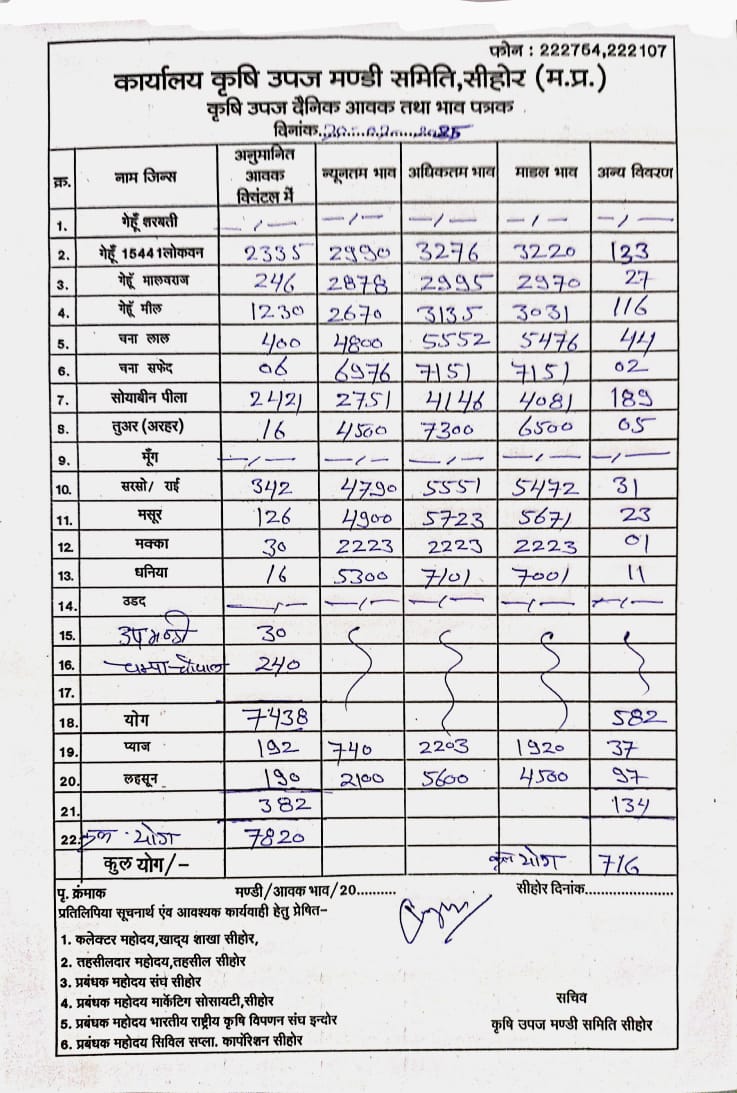 फोन : 222764,222107
कार्यालय कृषि उपज मण्डी समिति,सीहोर (म.प्र.)
कृषि उपज दैनिक आवक तथा भाव पत्रक
दिनांक
क्र. नाम जिन्स अनुमानित आवक क्विंटल में न्यूनतम भाव अधिकतम भाव माडल भाव अन्य विवरण
1. गेहूँ शरबती —/— —/— —/— —/— —/—
2. गेहूँ 15441लोकवन 2335 2990 3276 3220 133
3. गेहूँ मालवराज 246 2878 2995 2970 27
4. गेहूँ मील 1230 2670 3135 3031 116
5. चना लाल 400 4800 5552 5476 44
6. चना सफेद 06 6976 7151 7151 02
7. सोयाबीन पीला 2421 2751 4146 4081 189
8. तुअर (अरहर) 16 4500 7300 6500 05
9. मूँग —/— —/— —/— —/— —/—
10. सरसो/ राई 342 4790 5551 5472 31
11. मसूर 126 4900 5723 5671 23
12. मक्का 30 2223 2223 2223 01
13. धनिया 16 5300 7101 7001 11
14. उडद —/— —/— —/— —/— —/—
15. उपमण्डी 30
16. 240
17.
18. योग 7438 582
19. प्याज 192 740 2203 1920 37
20. लहसून 190 2100 5600 4500 97
21. 382 134
22. कुल योग 7820
कुल योग/– कुल योग 716
पृ. क्रंमाक मण्डी/आवक भाव/20.......... सीहोर दिनांक......................
प्रतिलिपिया सूचनार्थ एंव आवश्यक कार्यवाही हेतु प्रेषित–
1. कलेक्टर महोदय,खाद्य शाखा सीहोर,
2. तहसीलदार महोदय,तहसील सीहोर
3. प्रबंधक महोदय संघ सीहोर
4. प्रबंधक महोदय मार्केटिंग सोसायटी,सीहोर
सचिव
5. प्रबंधक महोदय भारतीय राष्ट्रीय कृषि विपणन संघ इन्दोर
कृषि उपज मण्डी समिति सीहोर
6. प्रबंधक महोदय सिविल सप्ला. कार्पोरेशन सीहोर